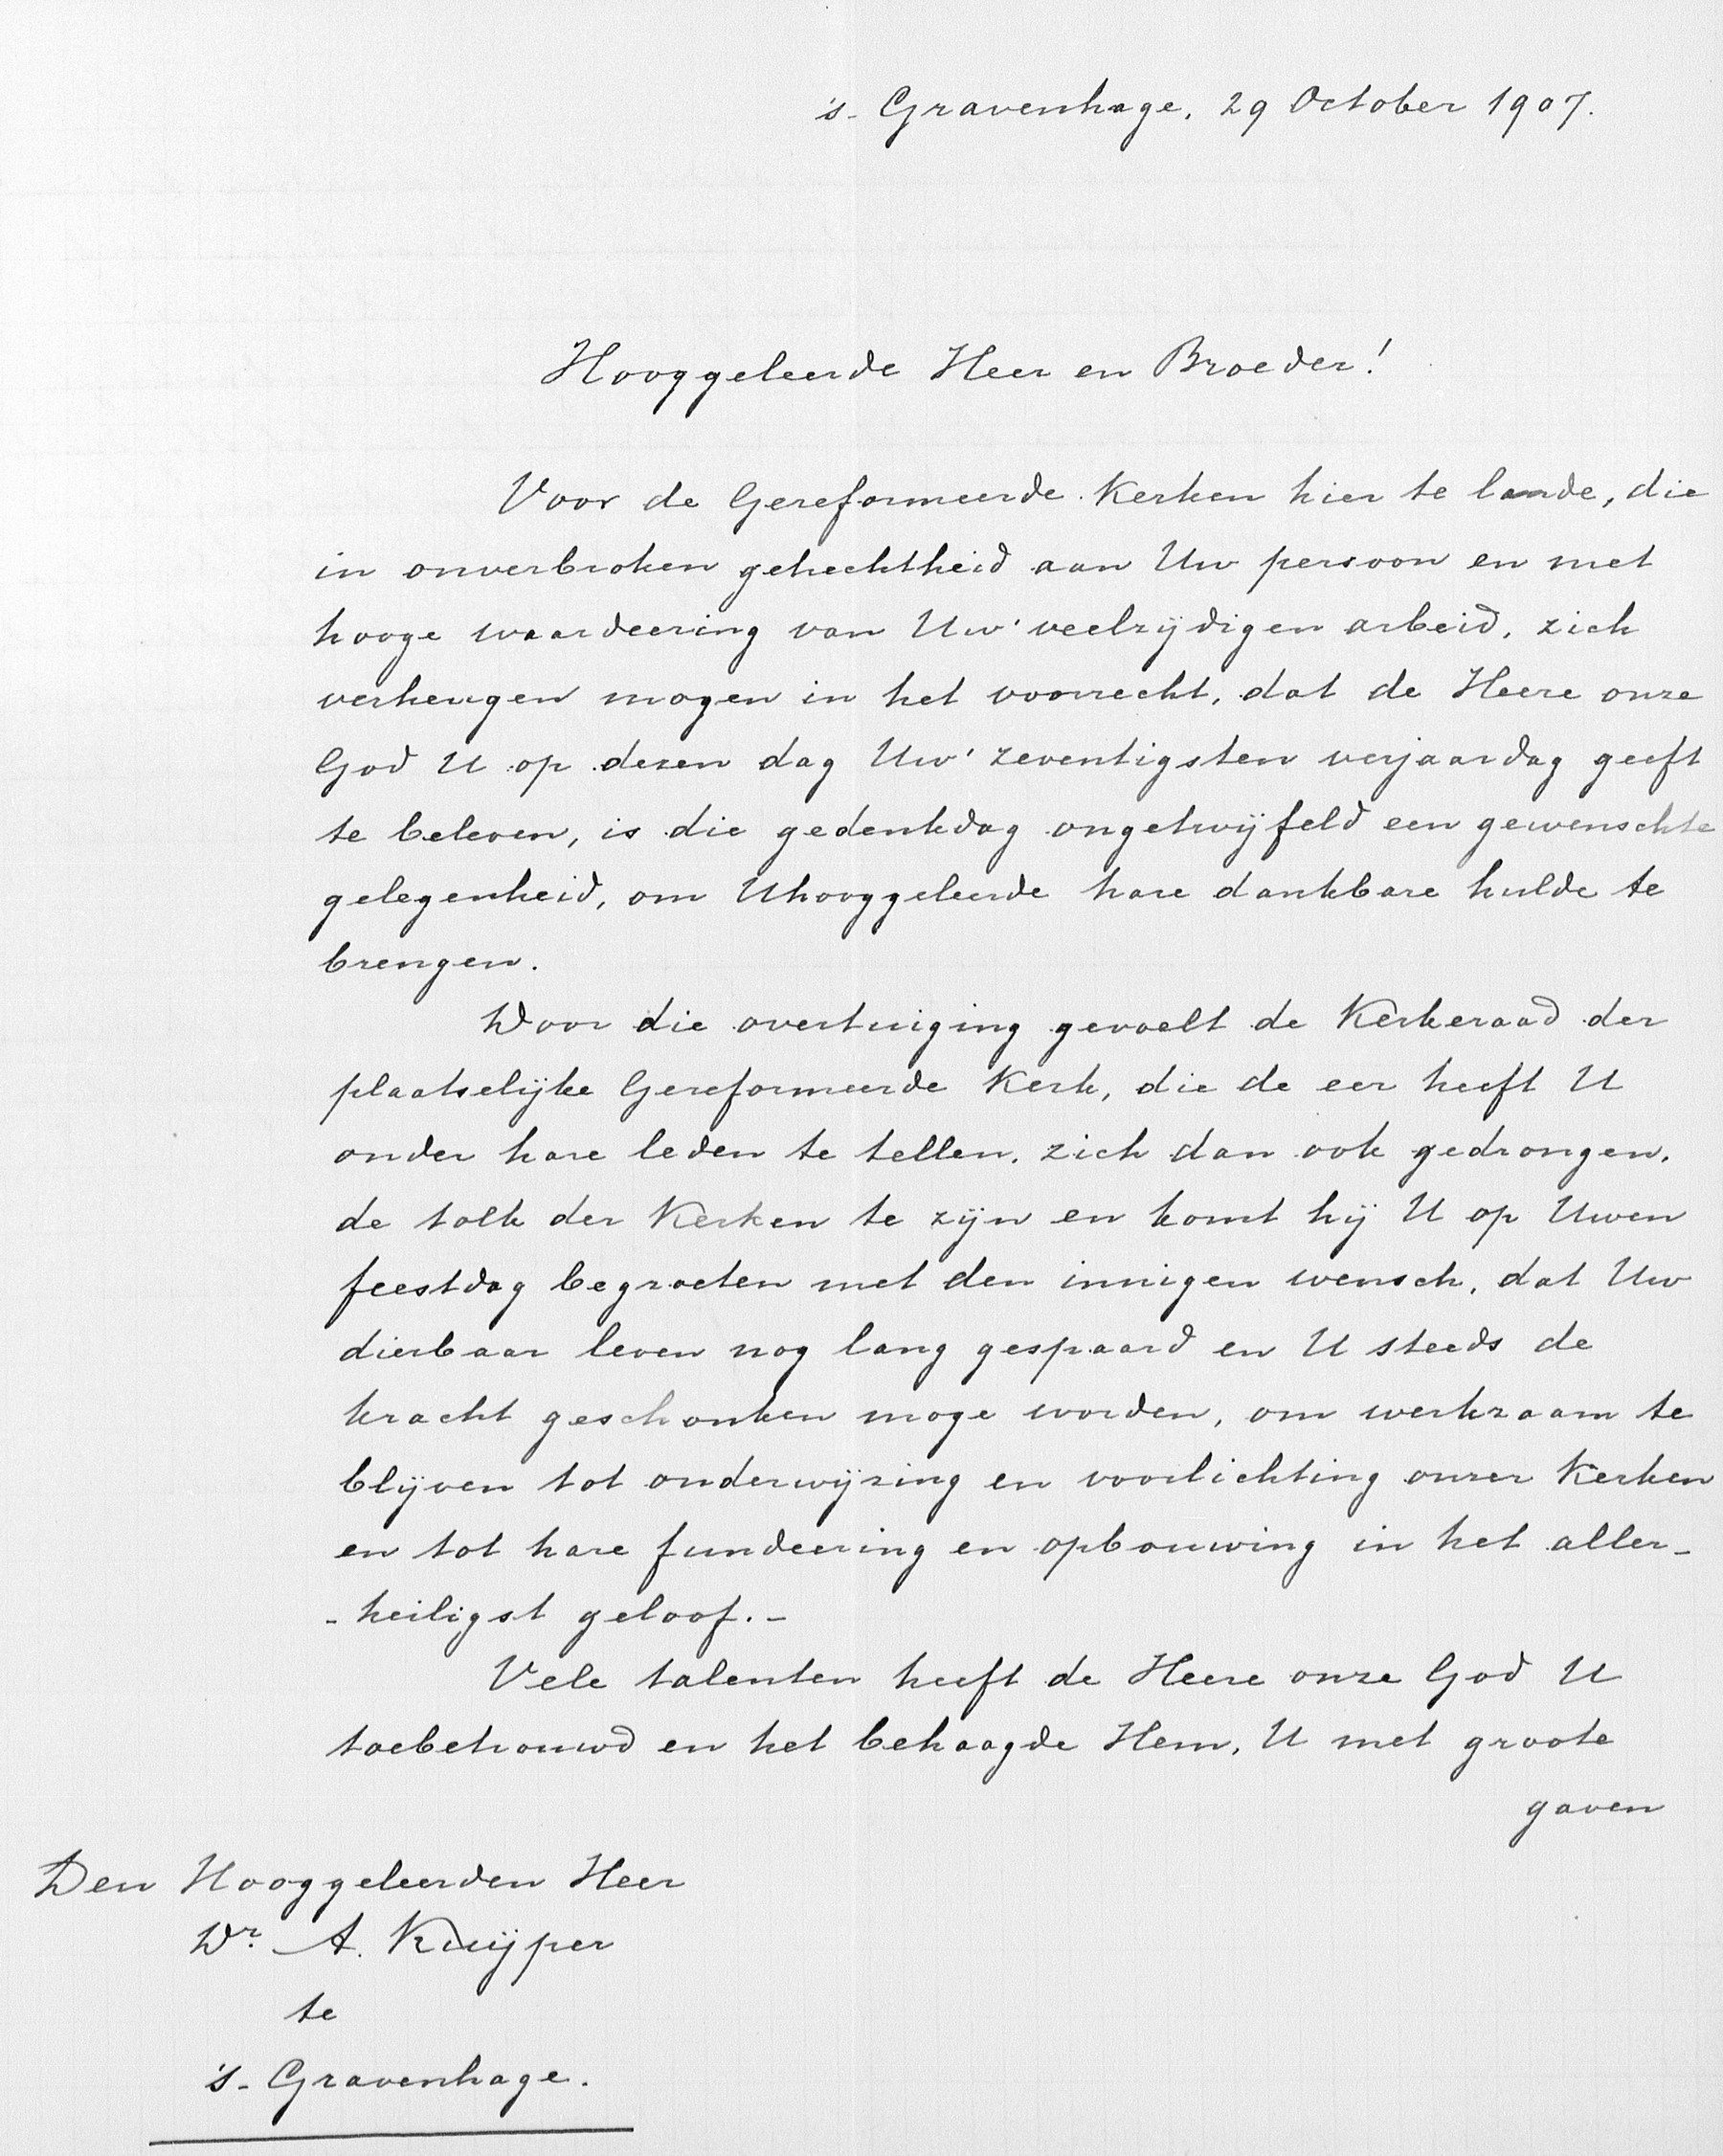 's-Gravenhage, 29 October 1907.
Hooggeleerde Heer en Broeder!
Voor de Gereformeerde Kerken hier te lande, die
in onverbroken gehechtheid aan Uw persoon en met
hooge waardeering van Uw' veelzijdigen arbeid, zich
verheugen mogen in het voorrecht, dat de Heere onze
God U op dezen dag Uw' zeventigsten verjaardag geeft
te beleven, is die gedenkdag ongetwijfeld een gewenschte
gelegenheid, om Uhooggeleerde hare dankbare hulde te
brengen.
Door die overtuiging gevoelt de Kerkeraad der
plaatselijke Gereformeerde Kerk, die de eer heeft U
onder hare leden te tellen, zich dan ook gedrongen,
de tolk der Kerken te zijn en komt hij U op Uwen
feestdag begroeten met den innigen wensch, dat Uw
dierbaar leven nog lang gespaard en U steeds de
kracht geschonken moge worden, om werkzaam te
blijven tot onderwijzing en voorlichting onzer Kerken
en tot hare fundeering en opbouwing in het aller-
-heiligst geloof.-
Vele talenten heeft de Heere onze God U
toebetrouwd en het behaagde Hem, U met groote
gaven
Den Hooggeleerden Heer
Dr. A. Kuijper
te
's-Gravenhage.